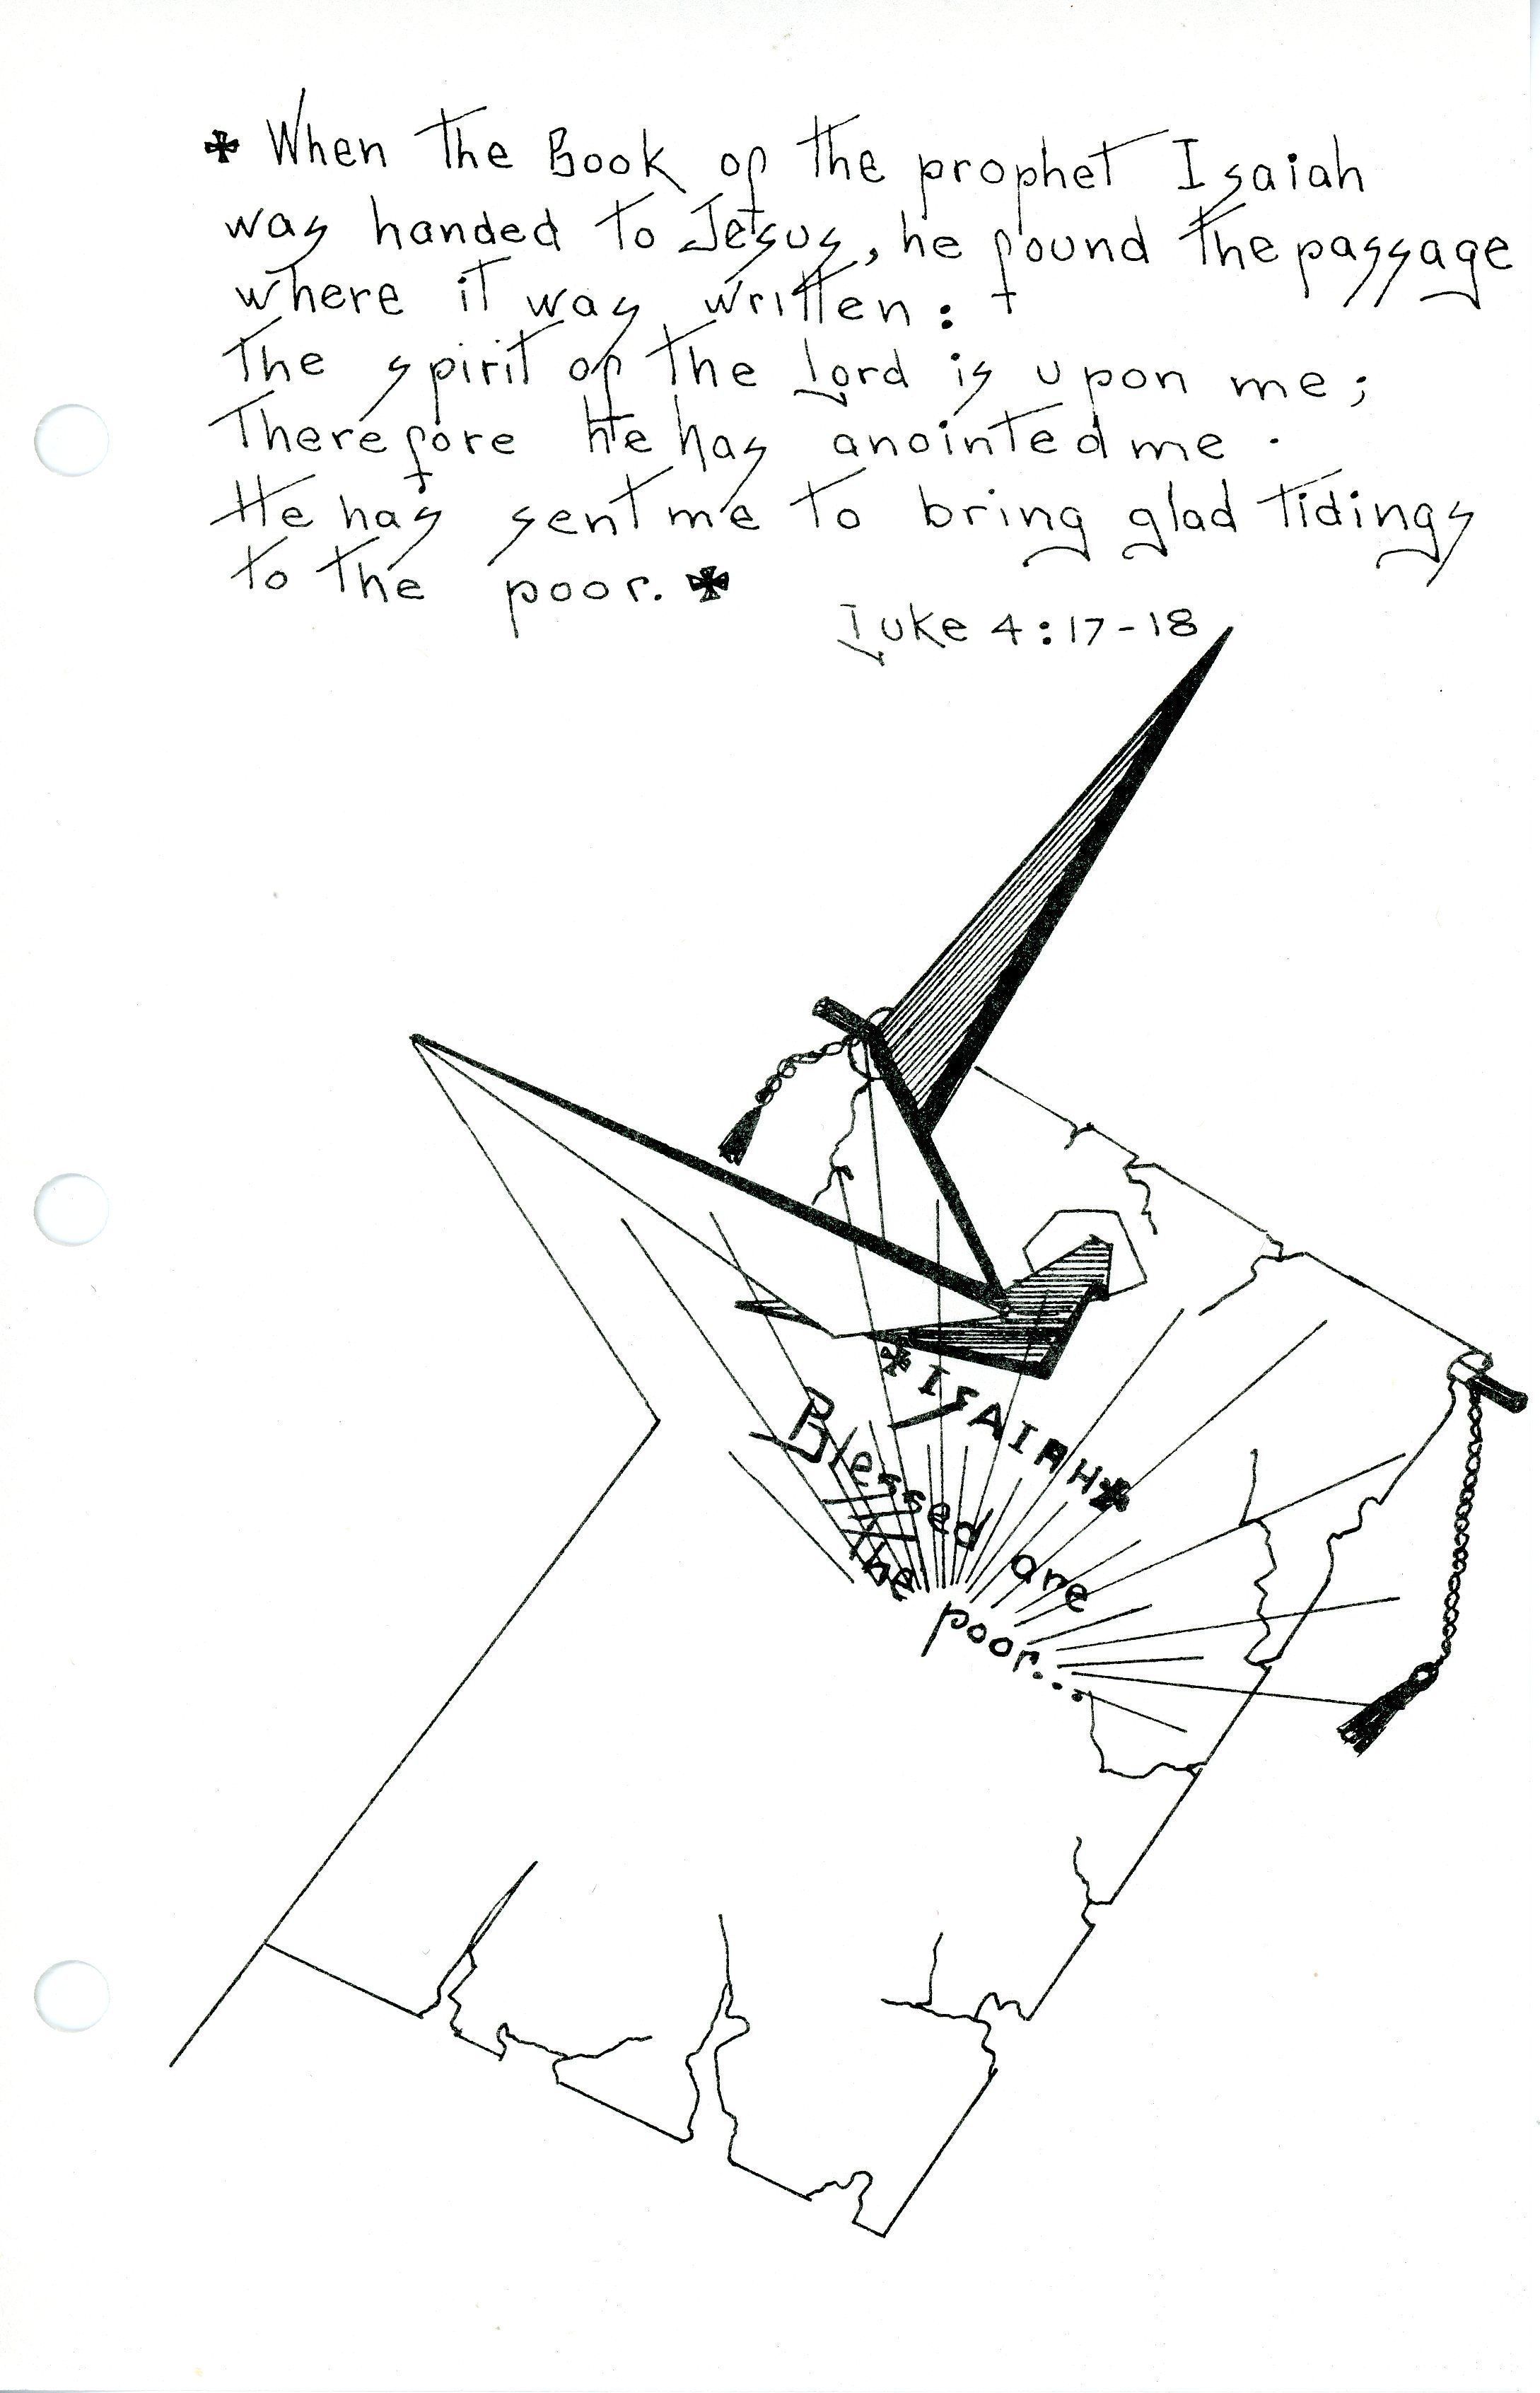 ✠ When the Book of the prophet Isaiah
was handed to Jesus, he found the passage
where it was written:
The spirit of the Lord is upon me;
Therefore He has anointed me.
He has sent me to bring glad tidings
to the poor. ✠
Luke 4:17-18
✠ ISAIAH ✠
Blessed are
the poor...